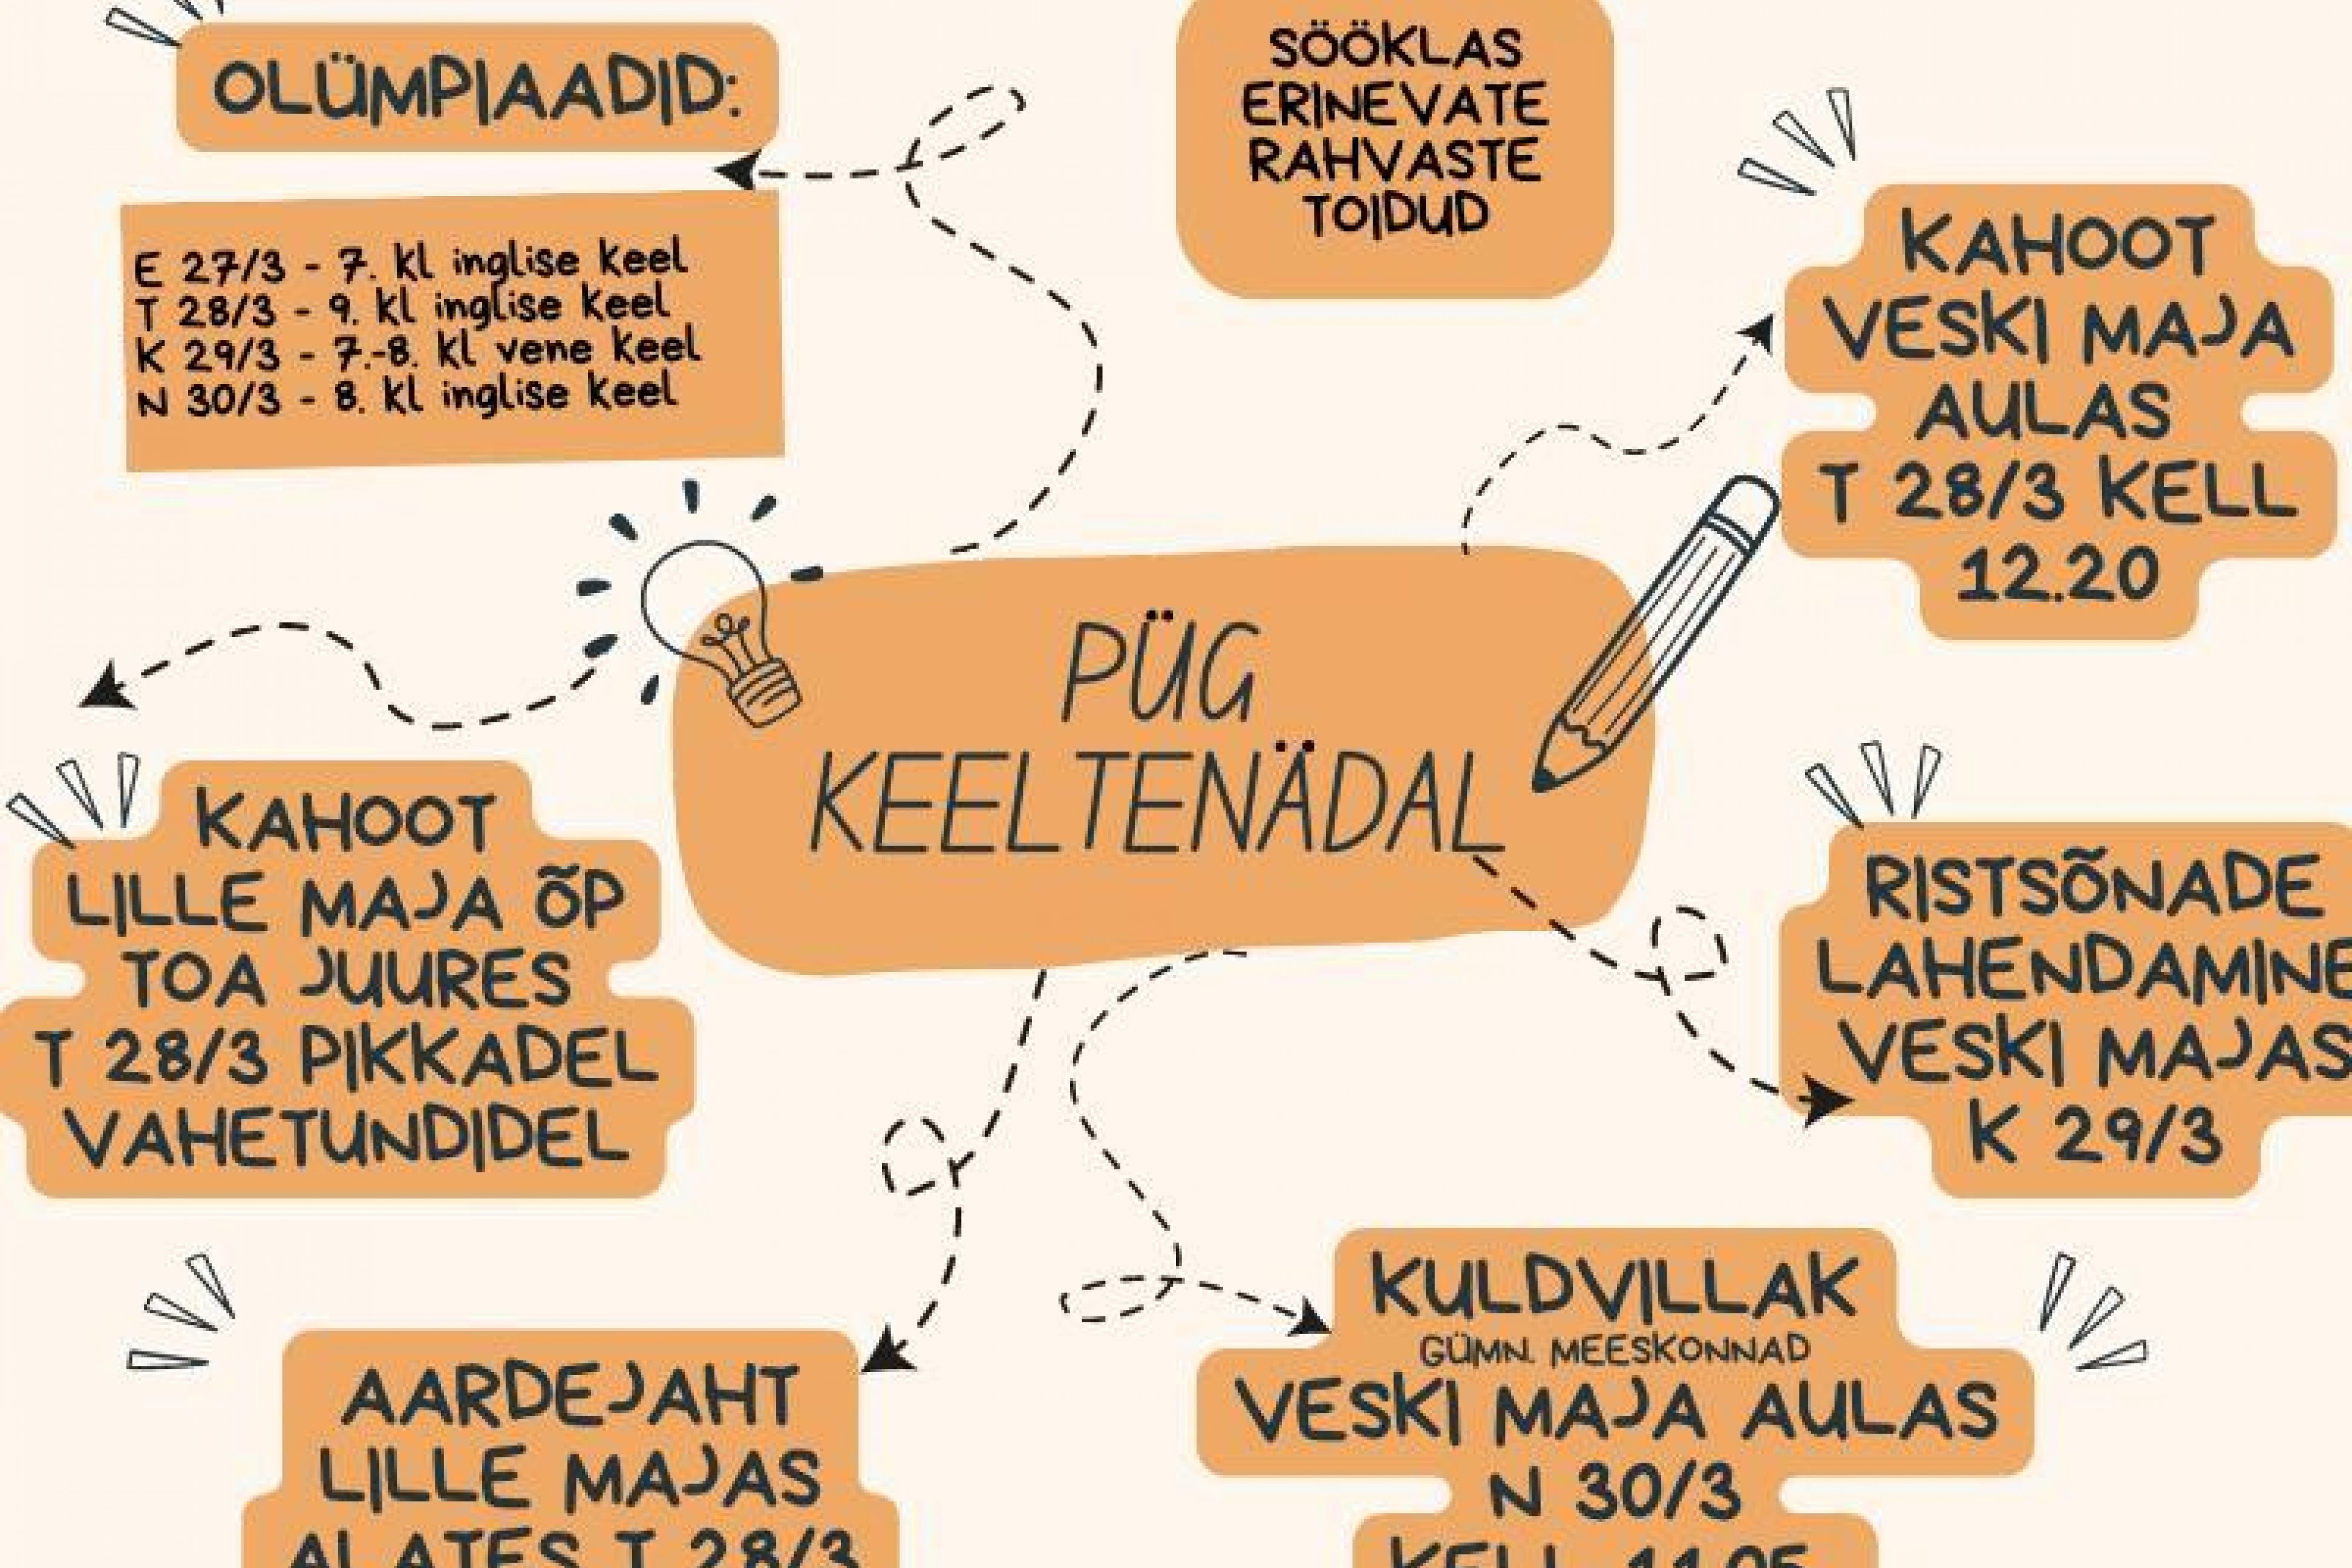 OLÜMPIAADID:
E 27/3 - 7. kl inglise keel
T 28/3 - 9. kl inglise keel
K 29/3 - 7.-8. kl vene keel
N 30/3 - 8. kl inglise keel
SÖÖKLAS
ERINEVATE
RAHVASTE
TOIDUD
KAHOOT
VESKI MAJA
AULAS
T 28/3 KELL
12.20
PÜG
KEELTENÄDAL
KAHOOT
LILLE MAJA ÕP
TOA JUURES
T 28/3 PIKKADEL
VAHETUNDIDEL
RISTSÕNADE
LAHENDAMINE
VESKI MAJAS
K 29/3
AARDEJAHT
LILLE MAJAS
ALATES T 28/3
KULDVILLAK
GÜMN. MEESKONNAD
VESKI MAJA AULAS
N 30/3
KELL 11.05